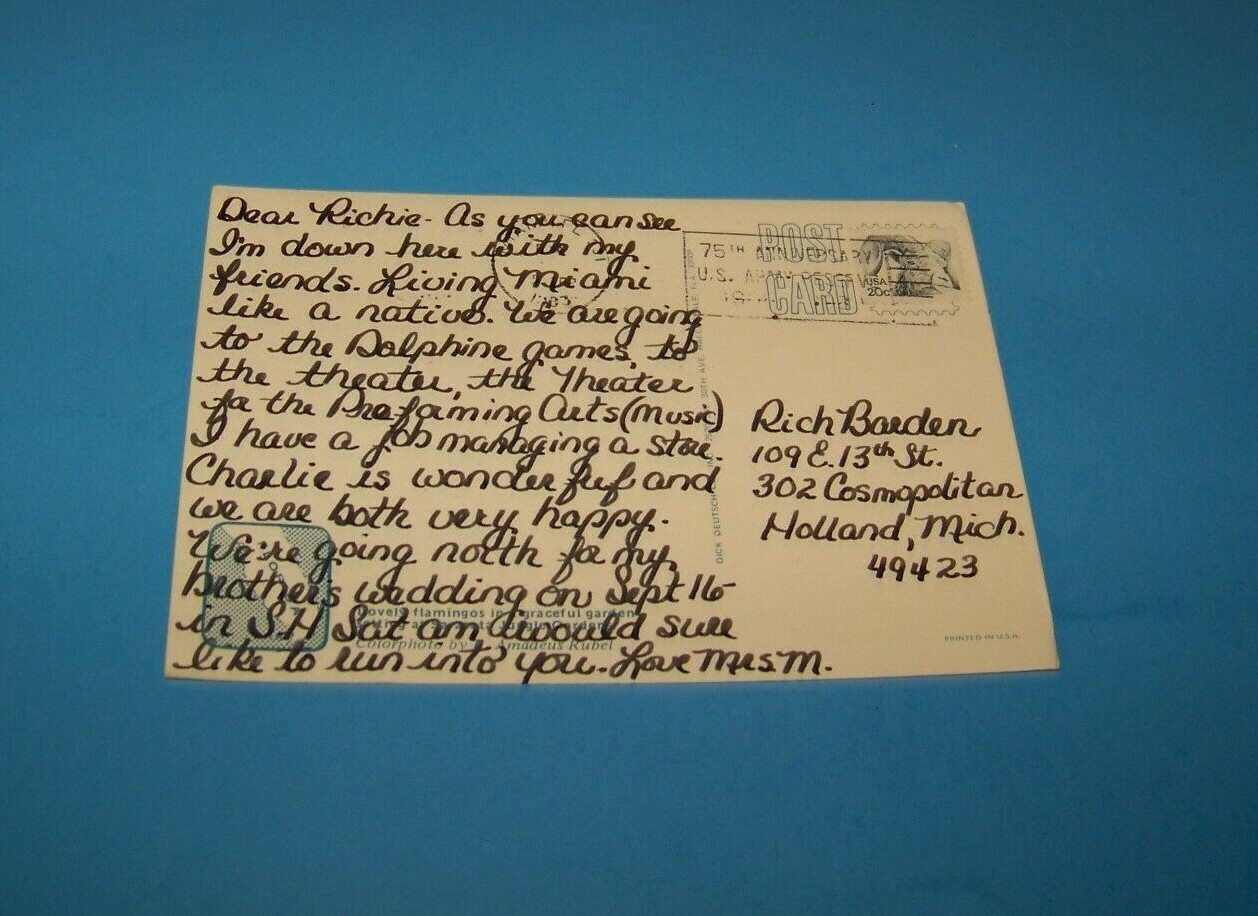 Dear Richie - As you can see
I'm down here with my
friends. Living Miami
like a native. We are going
to the Dolphine games, to
the theater, the Theater
for the Preforming Arts (Music)
I have a job managing a store.
Charlie is wonderful and
we are both very happy.
We're going north for my
brothers wedding on Sept 16
in S.H Sat am I would sure
like to run into you. Love Mrs. M.
Lovely flamingos in graceful garden
Jungle Gardens
Colorphoto by Amadeus Rubel
DICK DEUTSCH
30TH AVE.
POST
CARD
75TH ANNIVERSARY
U.S. ARMY RESERVE
1983
USA
20c
Rich Barden
109 E. 13th St.
302 Cosmopolitan
Holland, Mich.
49423
PRINTED IN U.S.A.